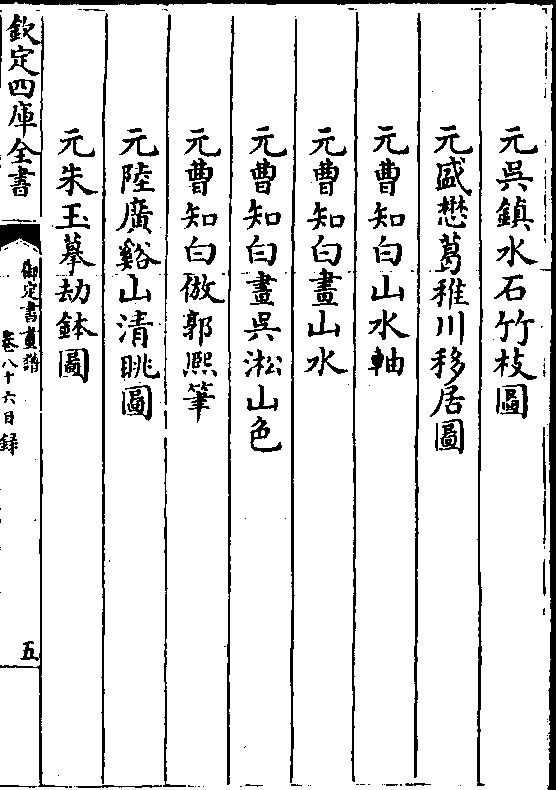 元吳鎮水石竹枝圖
元盛懋葛稚川移居圖
元曹知白山水軸
元曹知白畫山水
元曹知白畫吳淞山色
元曹知白倣郭熙筆
元陸廣谿山清眺圖
元朱玉摹劫鉢圖
欽定四庫全書
御定書畫譜
卷八十六目録
五